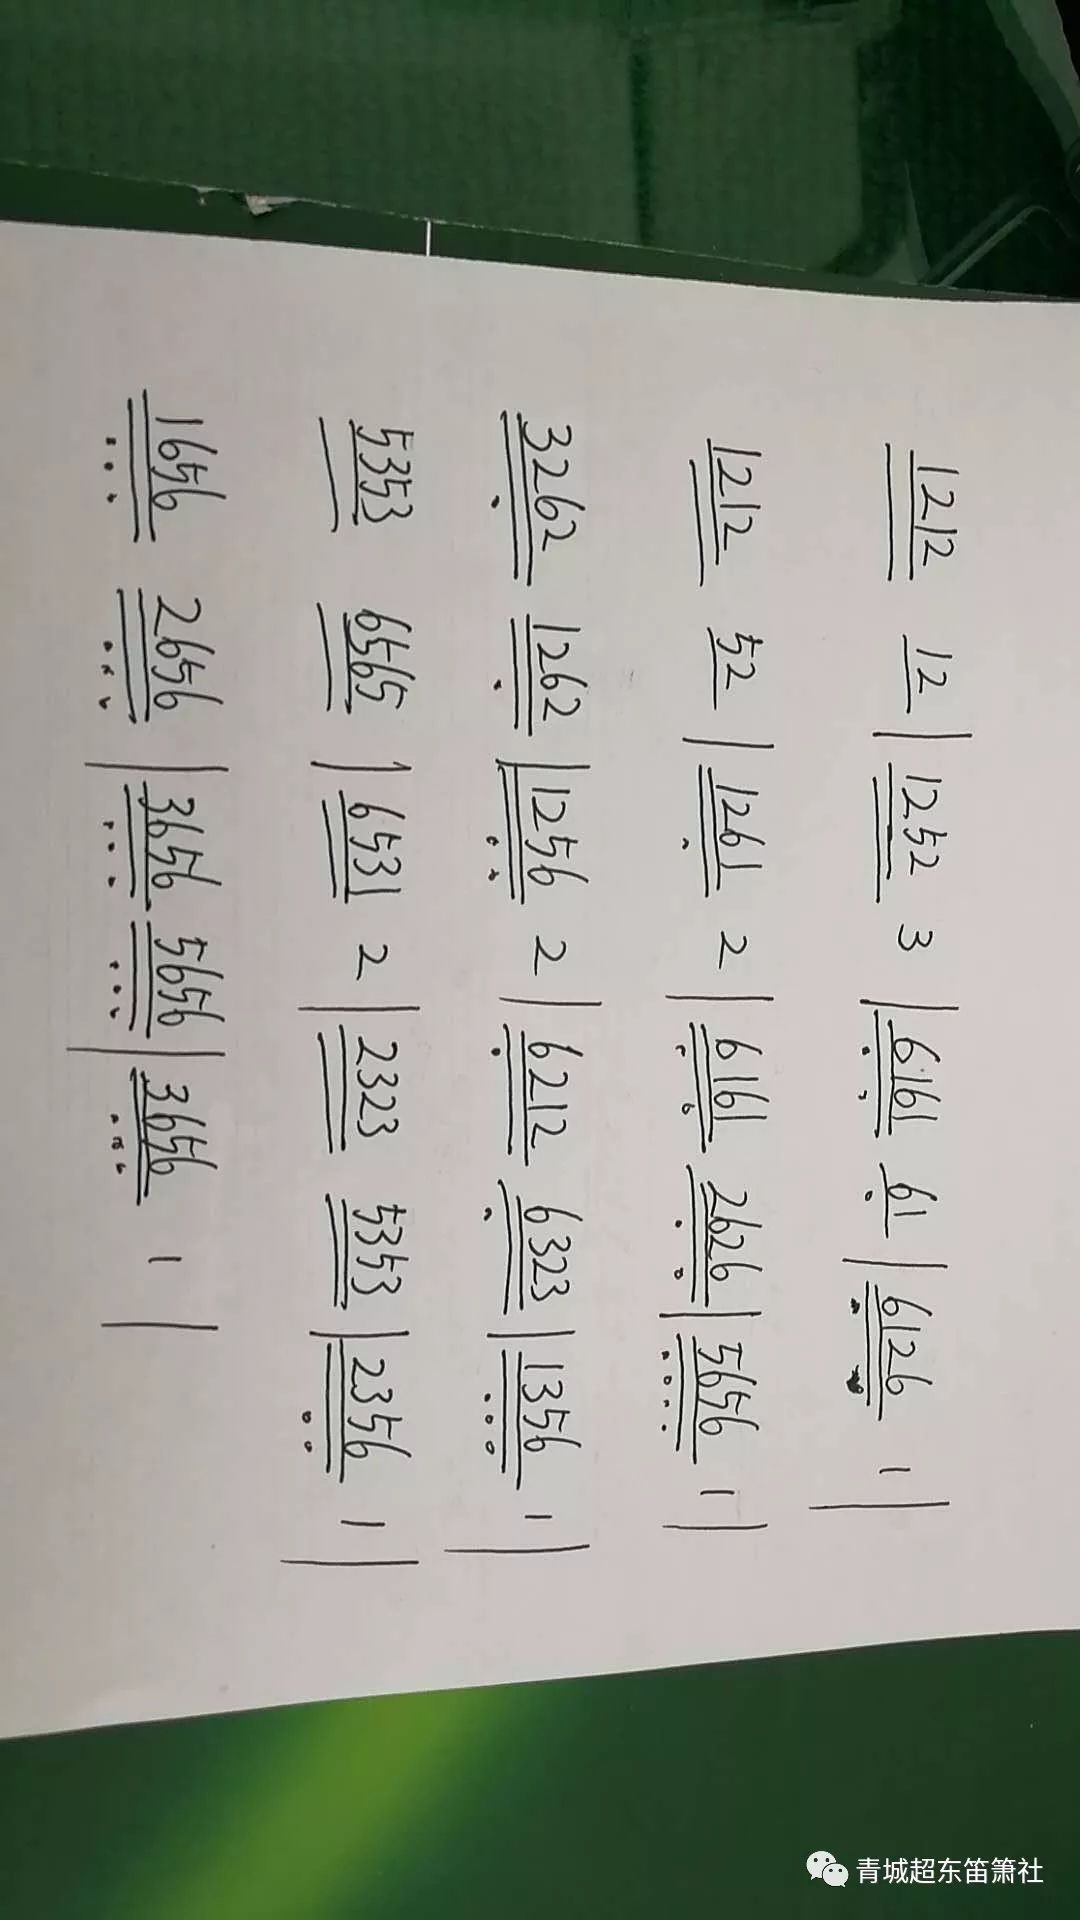 1212 12 | 1252 3 | 6161 61 | 6126 1 |
1212 52 | 1261 2 | 6161 2626 | 5656 1 |
3262 1262 | 1256 2 | 6212 6323 | 1356 1 |
5353 6565 | 6531 2 | 2323 5353 | 2356 1 |
1656 2656 | 3656 5656 | 3656 1 |
青城超东笛箫社